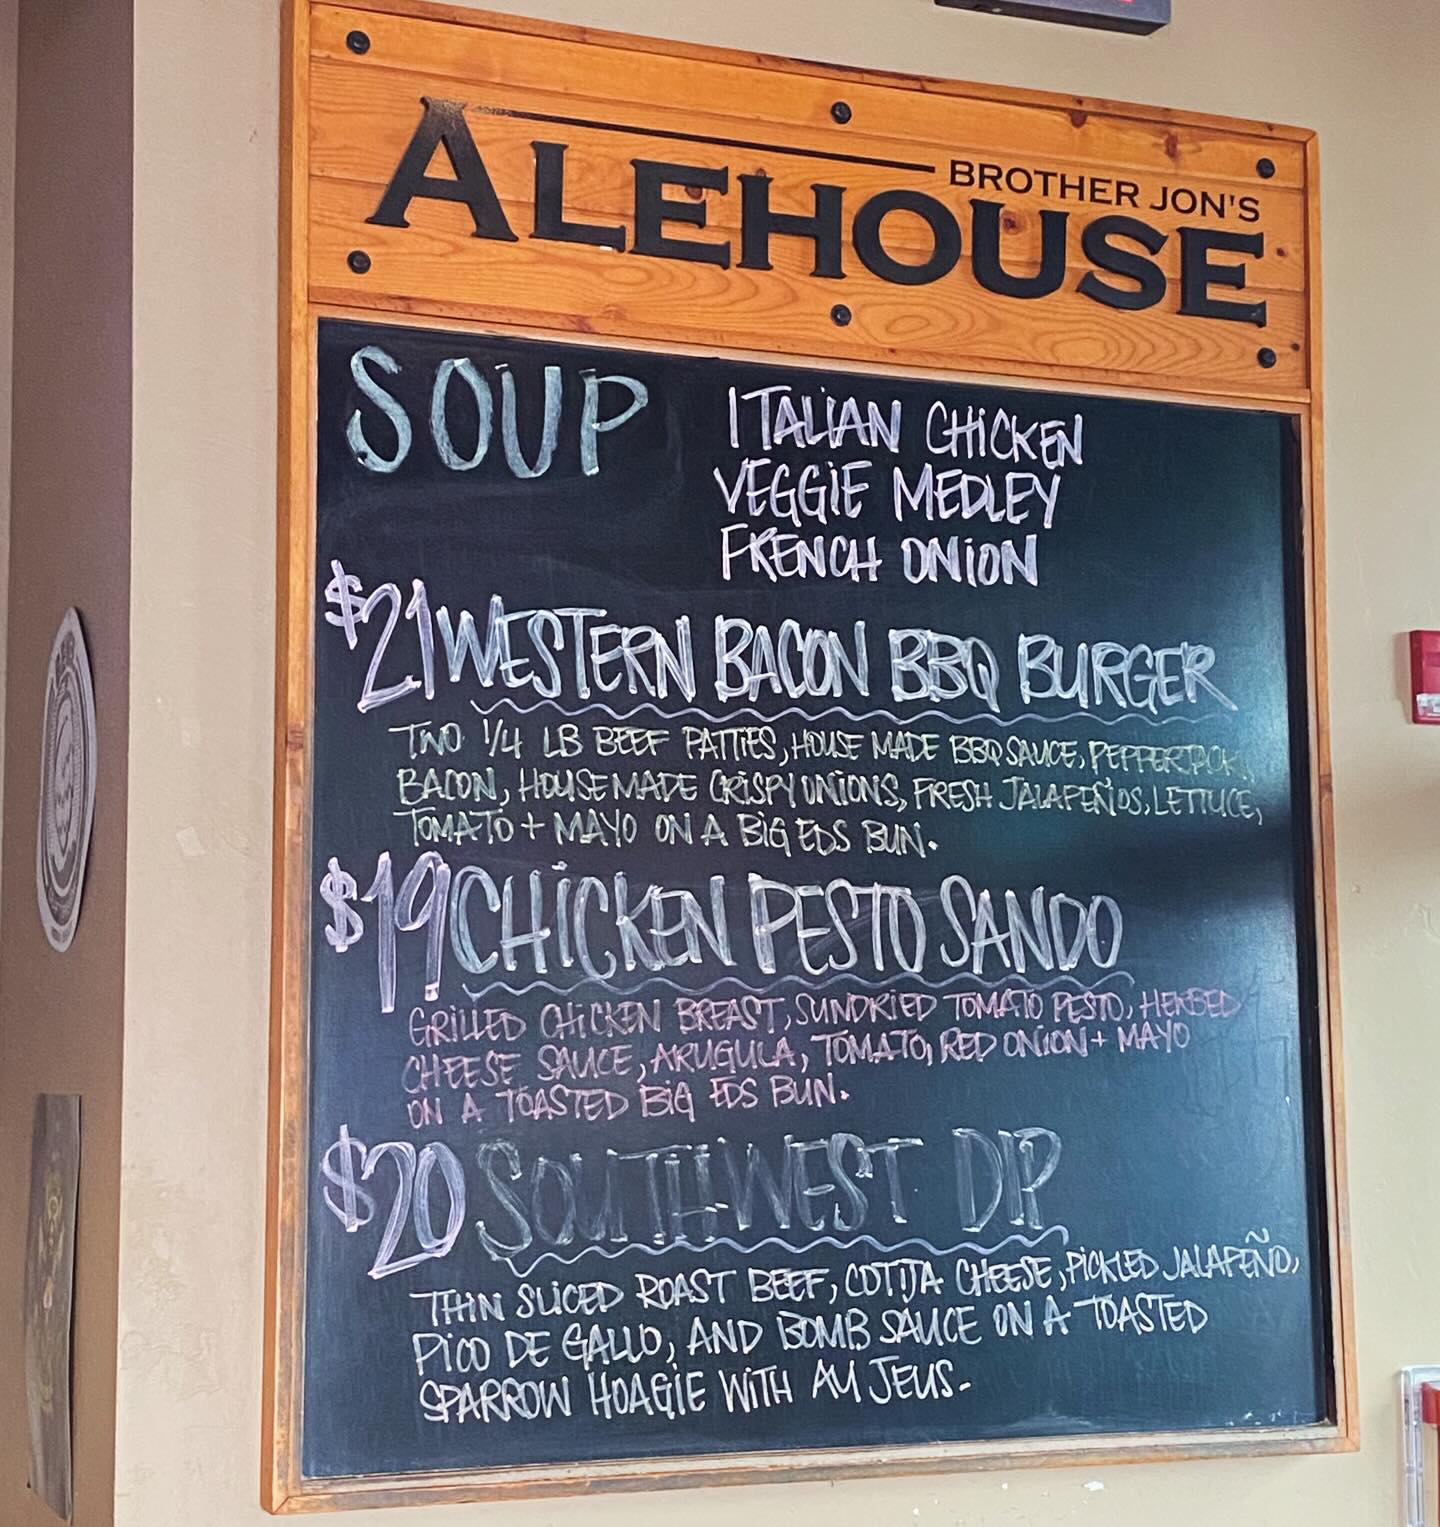 BROTHER JON'S
ALEHOUSE
SOUP
ITALIAN CHICKEN
VEGGIE MEDLEY
FRENCH ONION
$21 WESTERN BACON BBQ BURGER
TWO 1/4 LB BEEF PATTIES, HOUSE MADE BBQ SAUCE, PEPPERJACK,
BACON, HOUSEMADE CRISPY ONIONS, FRESH JALAPEÑOS, LETTUCE,
TOMATO + MAYO ON A BIG EDS BUN.
$19 CHICKEN PESTO SANDO
GRILLED CHICKEN BREAST, SUNDRIED TOMATO PESTO, HERBED
CHEESE SAUCE, ARUGULA, TOMATO, RED ONION + MAYO
ON A TOASTED BIG EDS BUN.
$20 SOUTHWEST DIP
THIN SLICED ROAST BEEF, COTIJA CHEESE, PICKLED JALAPEÑO,
PICO DE GALLO, AND BOMB SAUCE ON A TOASTED
SPARROW HOAGIE WITH AU JEUS.